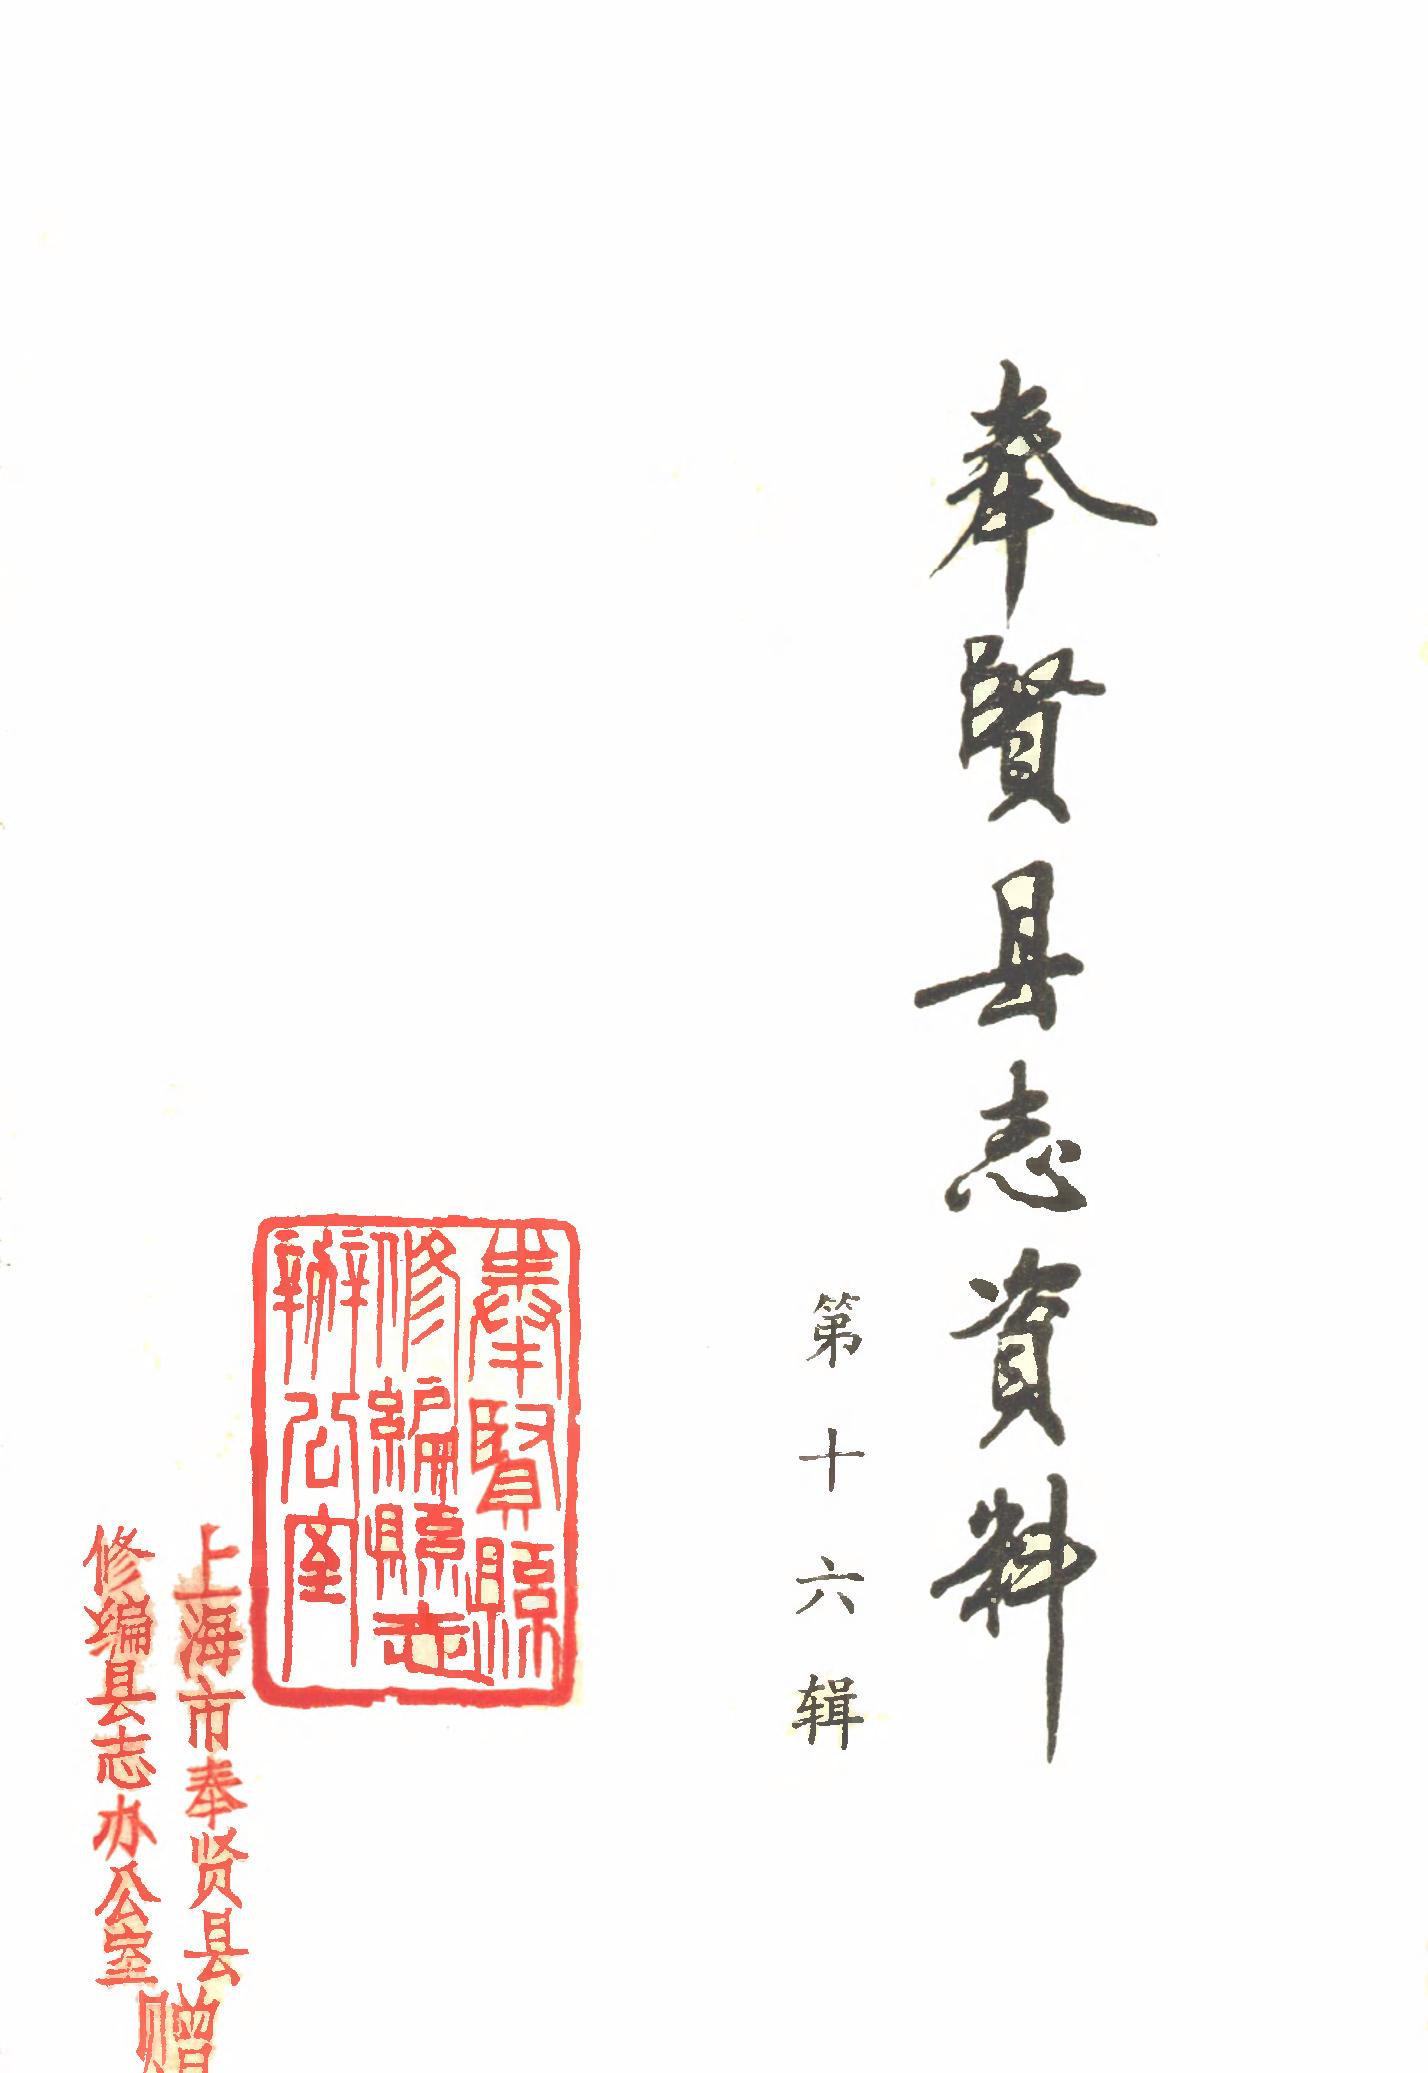 奉賢县志資料
第十六辑
奉賢縣
修編縣志
辦公室
上海市奉贤县
修编县志办公室
赠